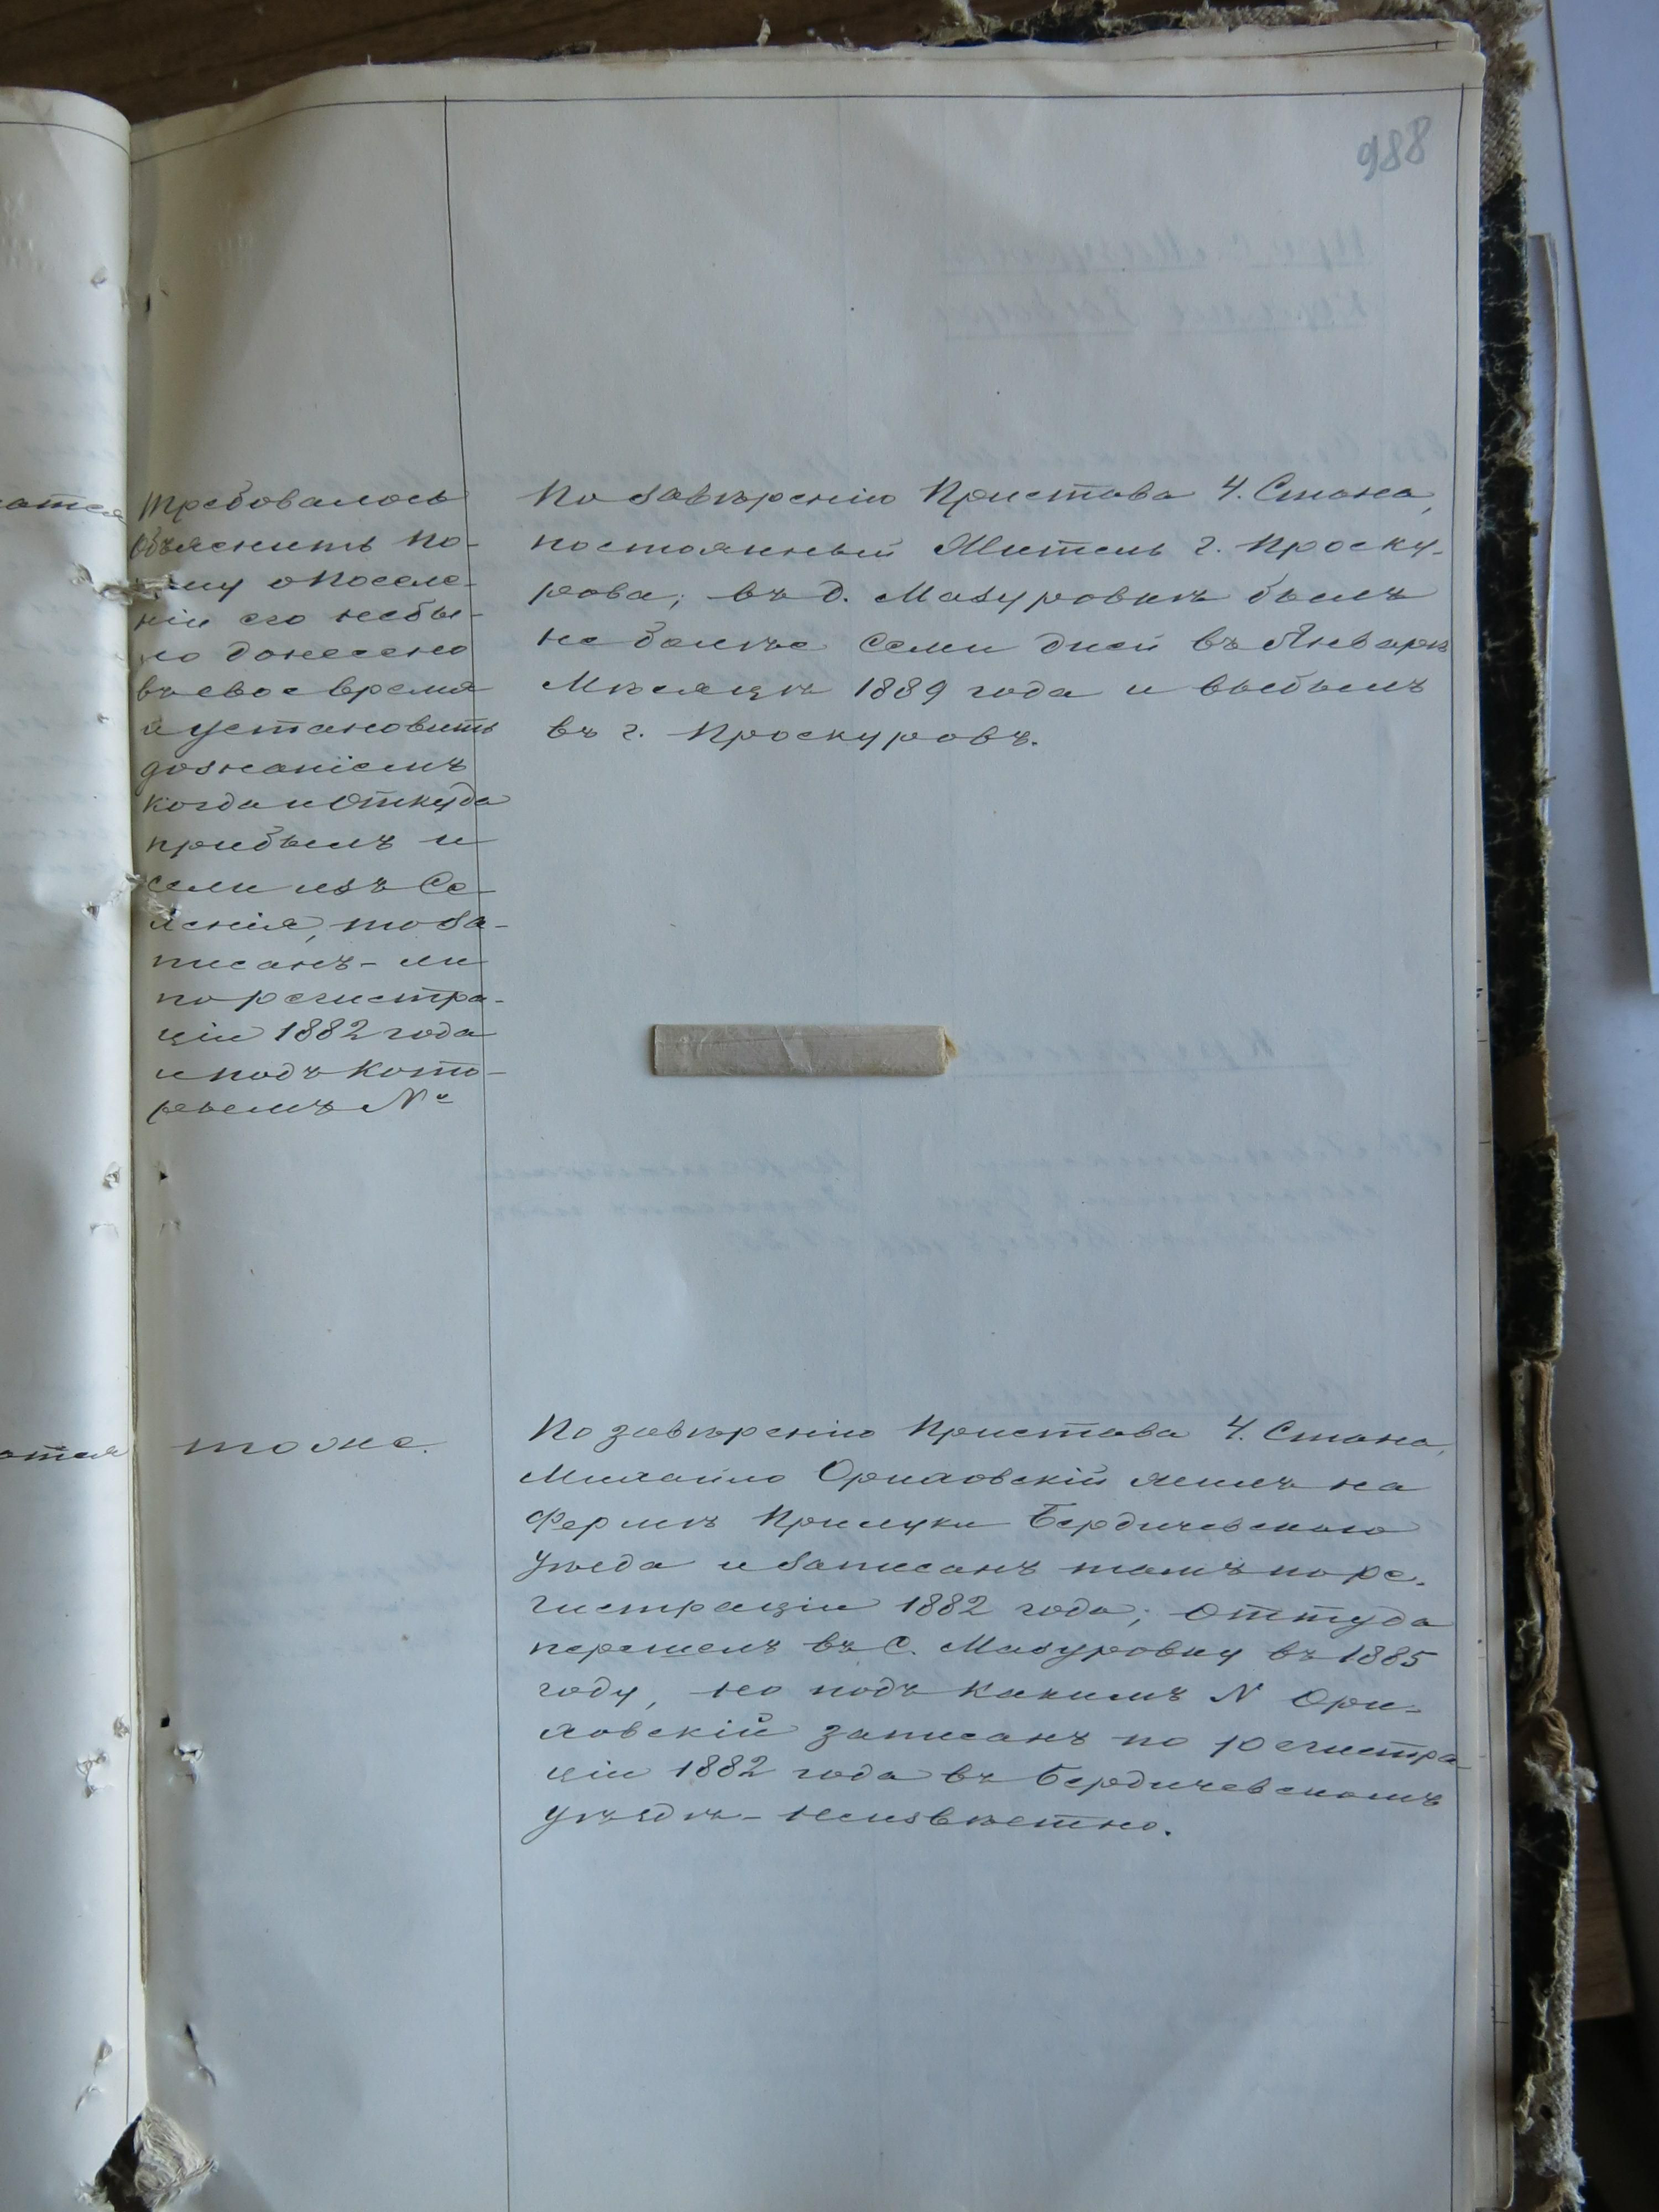 988
Требовалось
объяснить по-
чему о поселе-
ніи его не бы-
ло донесено
въ свое время
и установить
дознаніемъ
когда и откуда
прибылъ и
если изъ Се-
ленія, то за-
писанъ-ли
по регистра-
ціи 1882 года
и подъ кото-
рымъ №
По завѣренію Пристава 4. Стана,
постоянный Житель г. Проску-
рова; въ д. Мазуровкѣ былъ
не болѣе семи дней въ Январѣ
Мѣсяцѣ 1889 года и выбылъ
въ г. Проскуровъ.
тоже.
По завѣренію Пристава 4. Стана,
Михайло Ориховскій жилъ на
Фермѣ Прилуки Бердичевскаго
Уѣзда и записанъ тамъ по ре-
гистраціи 1882 года; оттуда
перешелъ въ С. Мазуровку въ 1885
году, но подъ какимъ N Ори-
ховскій записанъ по регистра-
ціи 1882 года въ Бердичевскомъ
уѣздѣ - неизвѣстно.